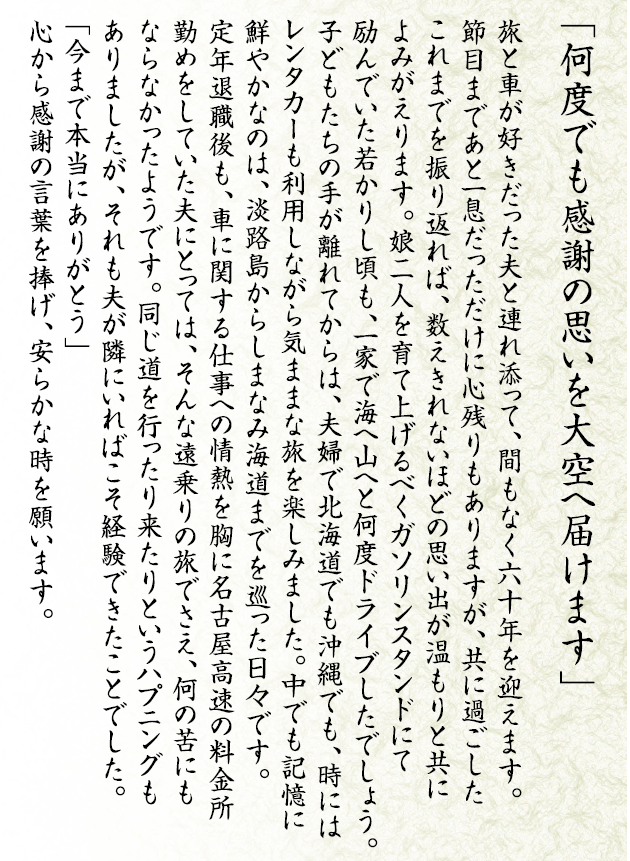 「何度でも感謝の思いを大空へ届けます」
旅と車が好きだった夫と連れ添って、間もなく六十年を迎えます。
節目まであと一息だっただけに心残りもありますが、共に過ごした
これまでを振り返れば、数えきれないほどの思い出が温もりと共に
よみがえります。娘二人を育て上げるべくガソリンスタンドにて
励んでいた若かりし頃も、一家で海へ山へと何度ドライブしたでしょう。
子どもたちの手が離れてからは、夫婦で北海道でも沖縄でも、時には
レンタカーも利用しながら気ままな旅を楽しみました。中でも記憶に
鮮やかなのは、淡路島からしまなみ海道までを巡った日々です。
定年退職後も、車に関する仕事への情熱を胸に名古屋高速の料金所
勤めをしていた夫にとっては、そんな遠乗りの旅でさえ、何の苦にも
ならなかったようです。同じ道を行ったり来たりというハプニングも
ありましたが、それも夫が隣にいればこそ経験できたことでした。
「今まで本当にありがとう」
心から感謝の言葉を捧げ、安らかな時を願います。